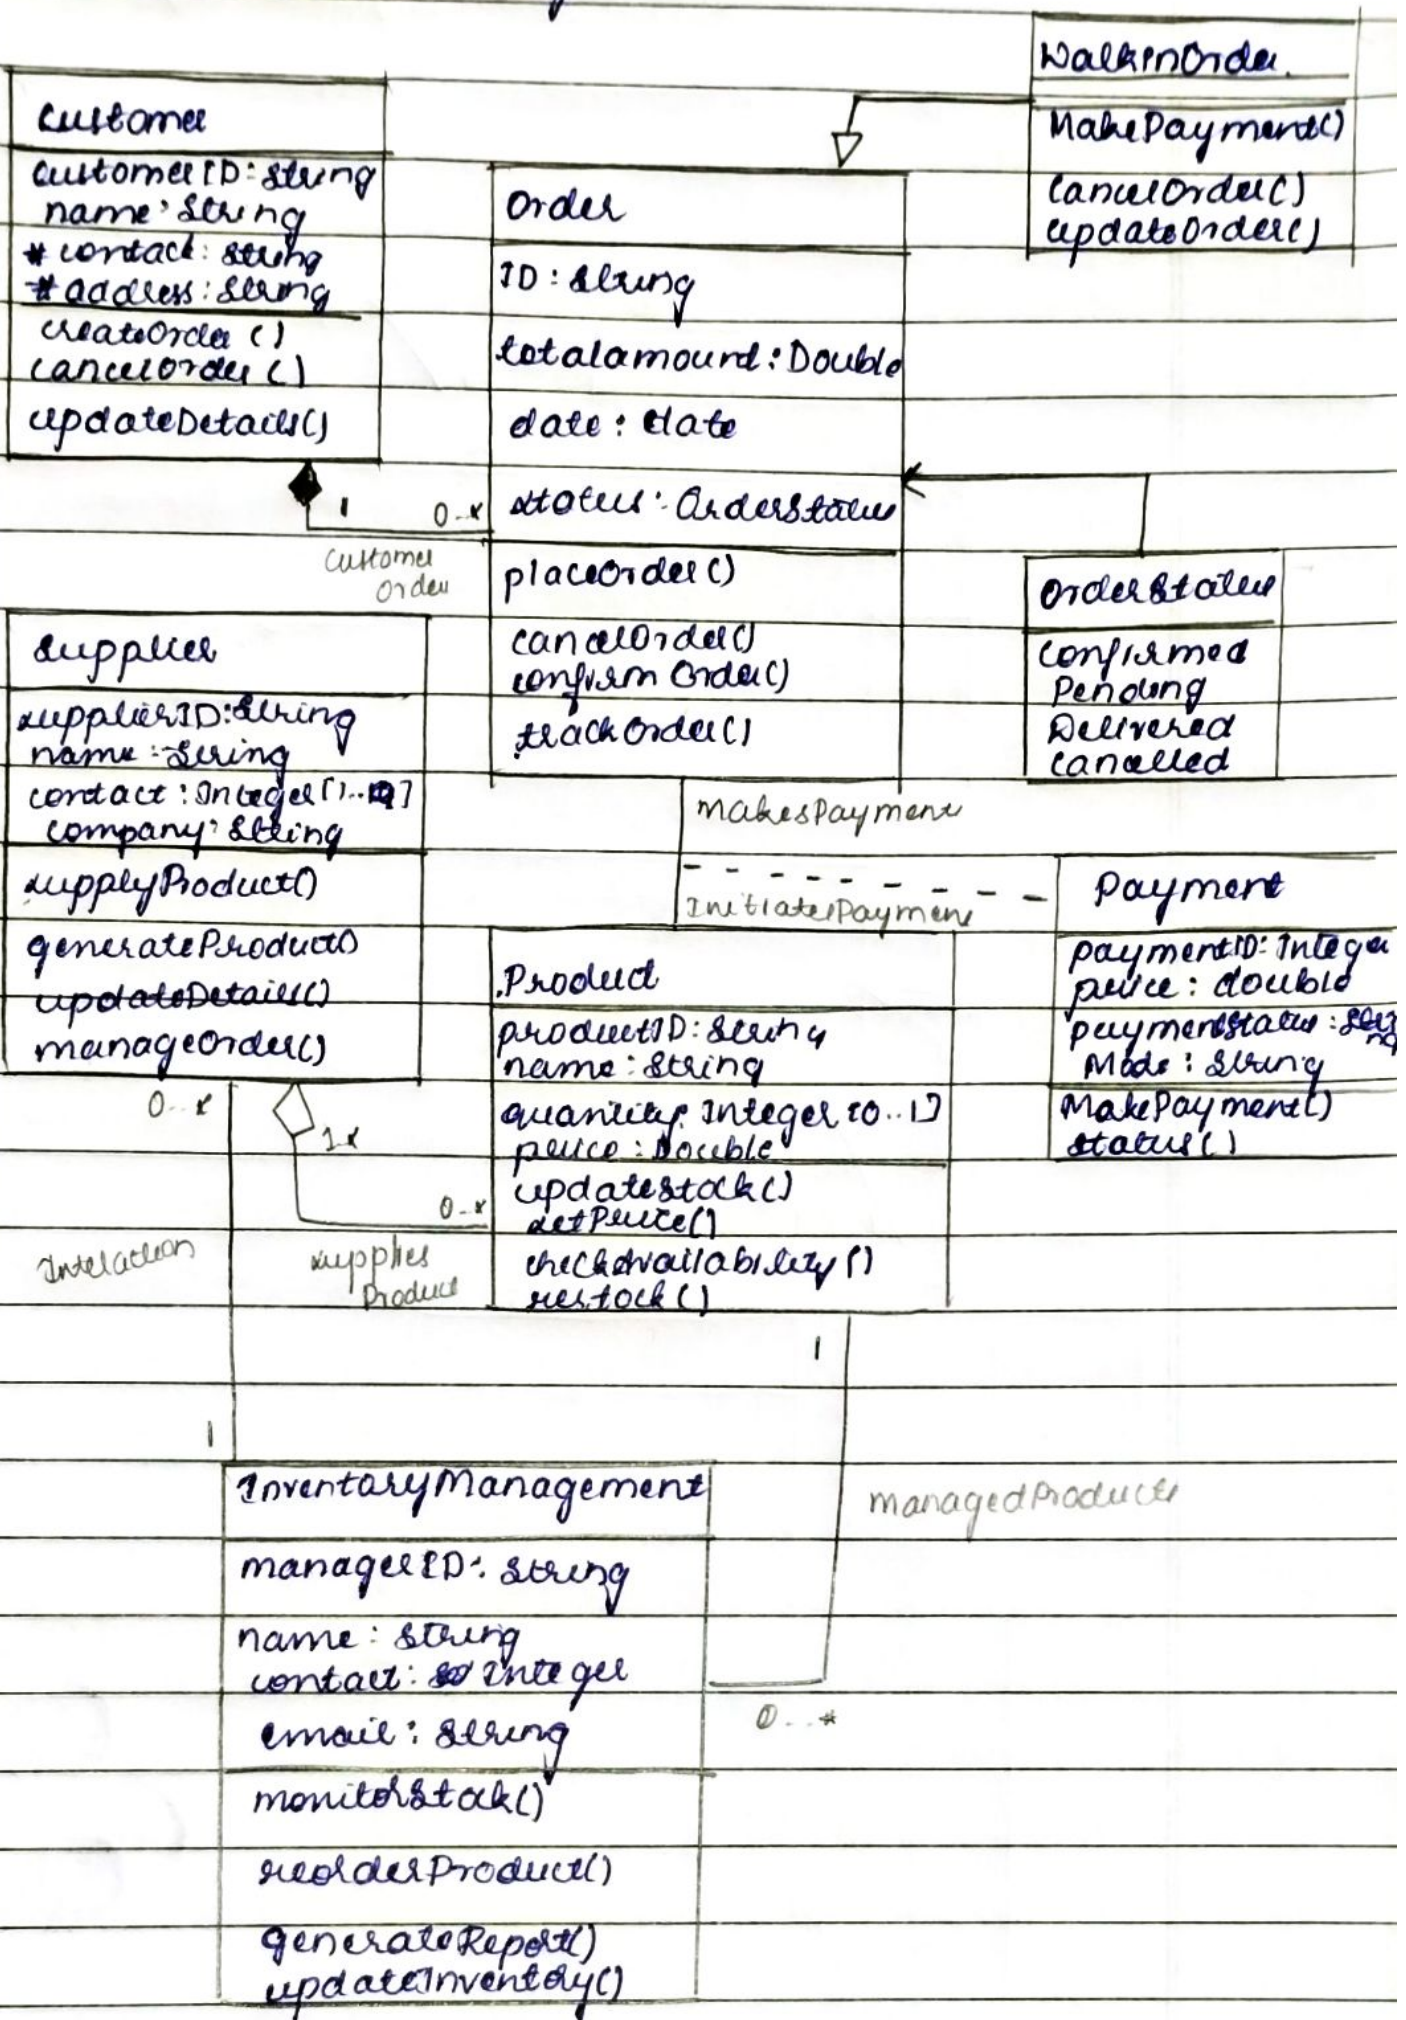 WalkinOrder
MakePayment()
cancelOrder()
updateOrder()
Customer
customerID: String
name: String
# contact: String
# address: String
createOrder ()
cancelOrder ()
updateDetails()
1
0..*
Customer
Order
Order
ID: String
totalamount: Double
date: date
status: OrderStatus
placeOrder()
cancelOrder()
confirm Order()
trackOrder()
OrderStatus
Confirmed
Pending
Delivered
Cancelled
Supplier
supplierID: String
name: String
contact: Integer
company: String
supplyProduct()
generateProduct()
updateDetails()
manageOrder()
MakesPayment
InitiatesPayment
Payment
paymentID: Integer
price: double
paymentstatus: String
Mode: String
MakePayment()
status()
Product
productID: String
name: String
quantity: Integer [0..1]
price: Double
updatestock()
setPrice()
checkAvailability()
restock()
0..*
1..*
0..*
Interaction
supplies
Product
1
1
InventoryManagement
managerID: String
name: String
contact: Integer
email: String
monitorStock()
reorderProduct()
generateReport()
updateInventory()
managedProducts
0...*